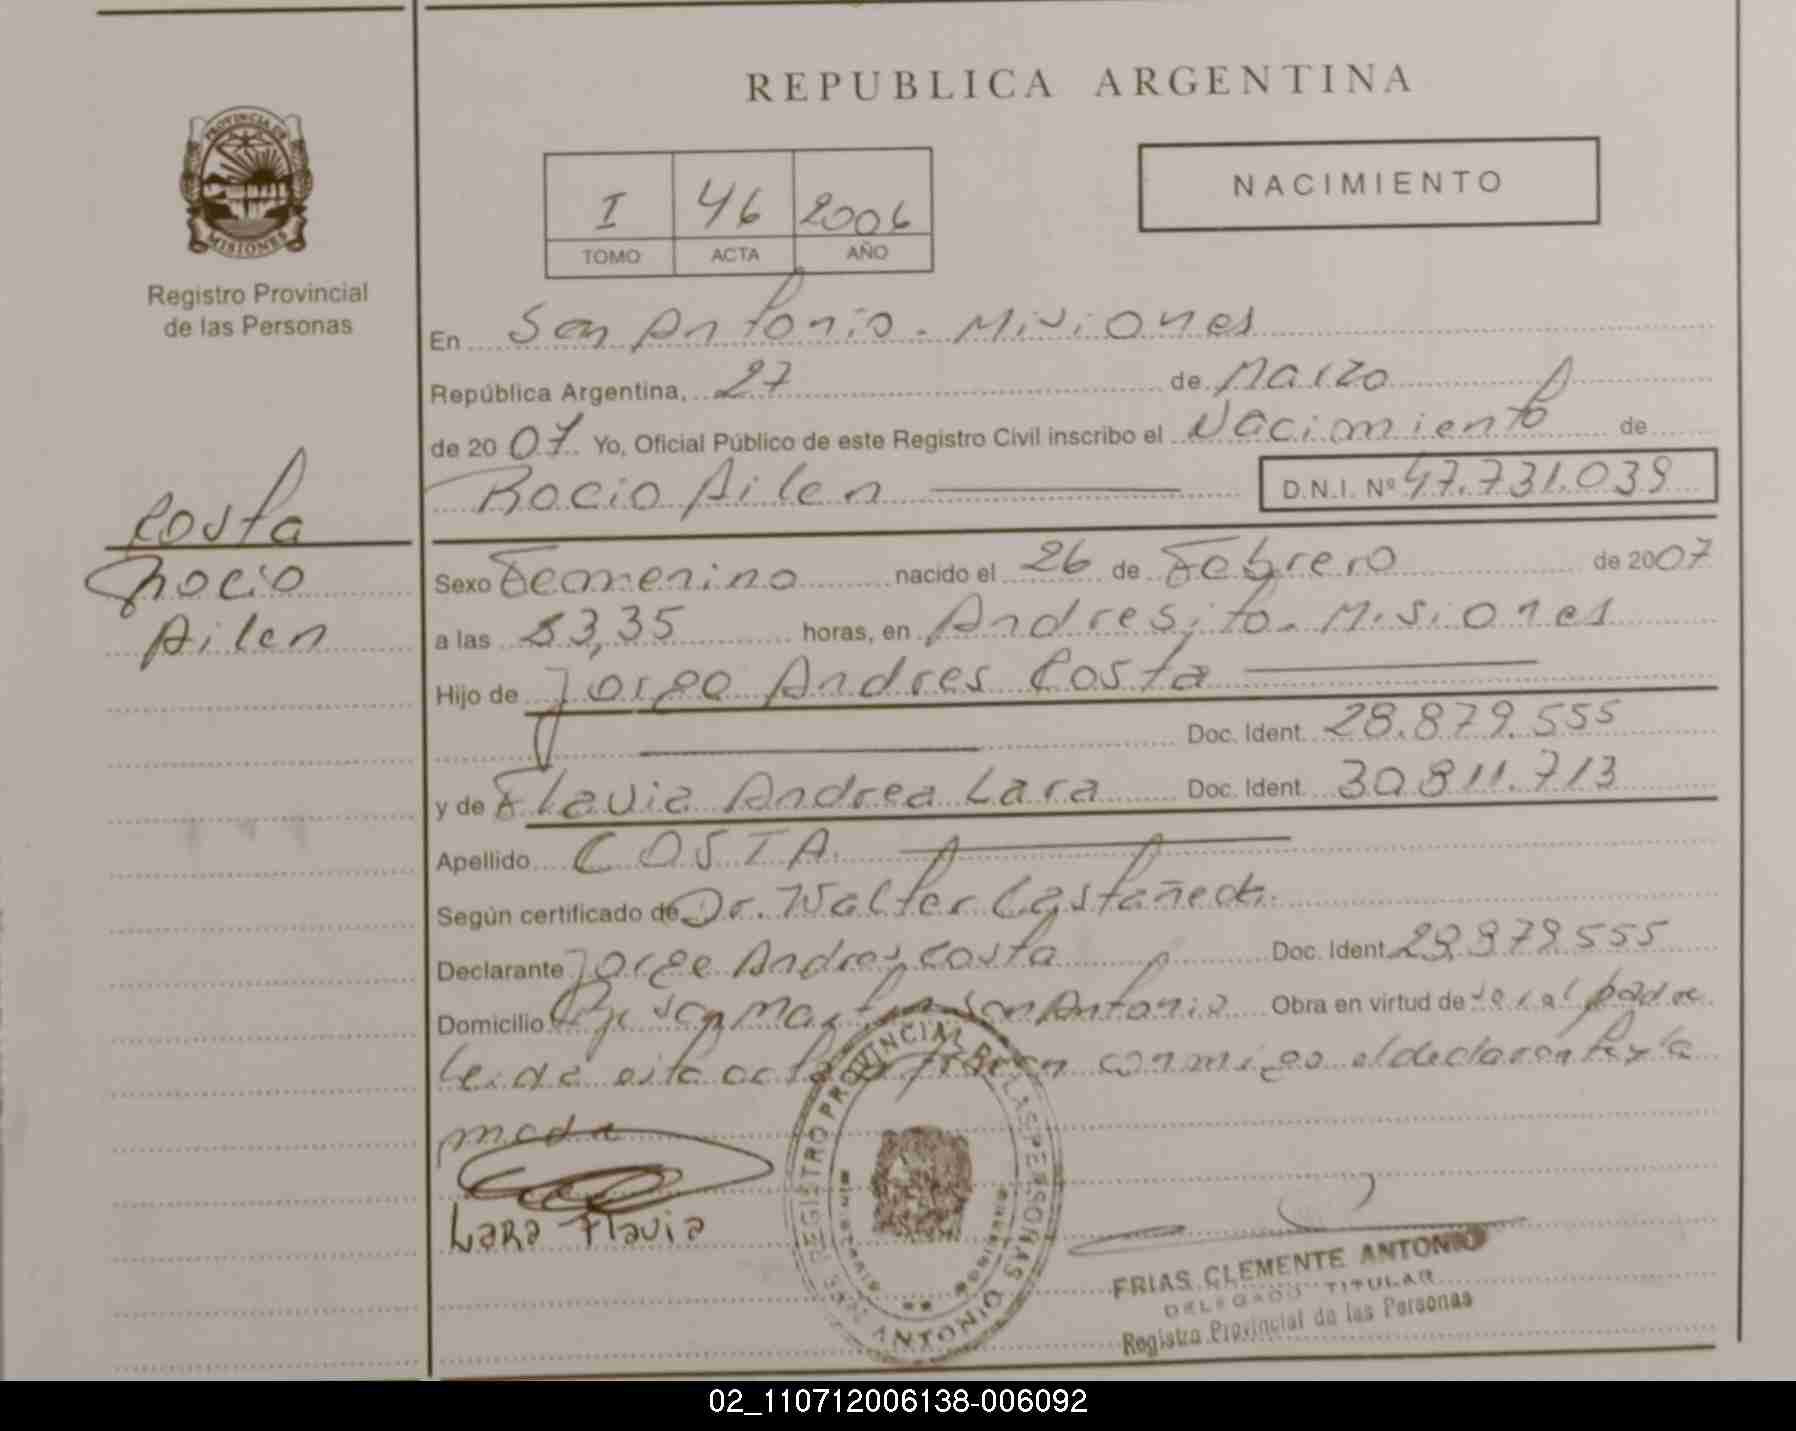 REPUBLICA ARGENTINA
PROVINCIA DE
MISIONES
Registro Provincial
de las Personas
NACIMIENTO
I 46 2006
TOMO ACTA AÑO
En San Antonio - Misiones
República Argentina, 27 de Marzo
de 2007. Yo, Oficial Público de este Registro Civil inscribo el Nacimiento de
Rocio Ailen D.N.I. Nº 47.731.039
Costa
Rocio
Ailen
Sexo Femenino nacido el 26 de Febrero de 2007
a las 13,35 horas, en Andresito. Misiones
Hijo de Jorge Andres Costa
Doc. Ident. 28.879.555
y de Flavia Andrea Lara Doc. Ident. 30811.713
Apellido COSTA
Según certificado de Dr. Walter Castañeda.
Declarante Jorge Andres Costa Doc. Ident. 28.879.555
Domicilio San Martin San Antonio Obra en virtud de ser el padre
Leida esta acta firman conmigo el declarante y la
madre
Lara Flavia
REGISTRO PROVINCIAL DE LAS PERSONAS
SAN ANTONIO
FRIAS CLEMENTE ANTONIO
DELEGADO TITULAR
Registro Provincial de las Personas
02_110712006138-006092